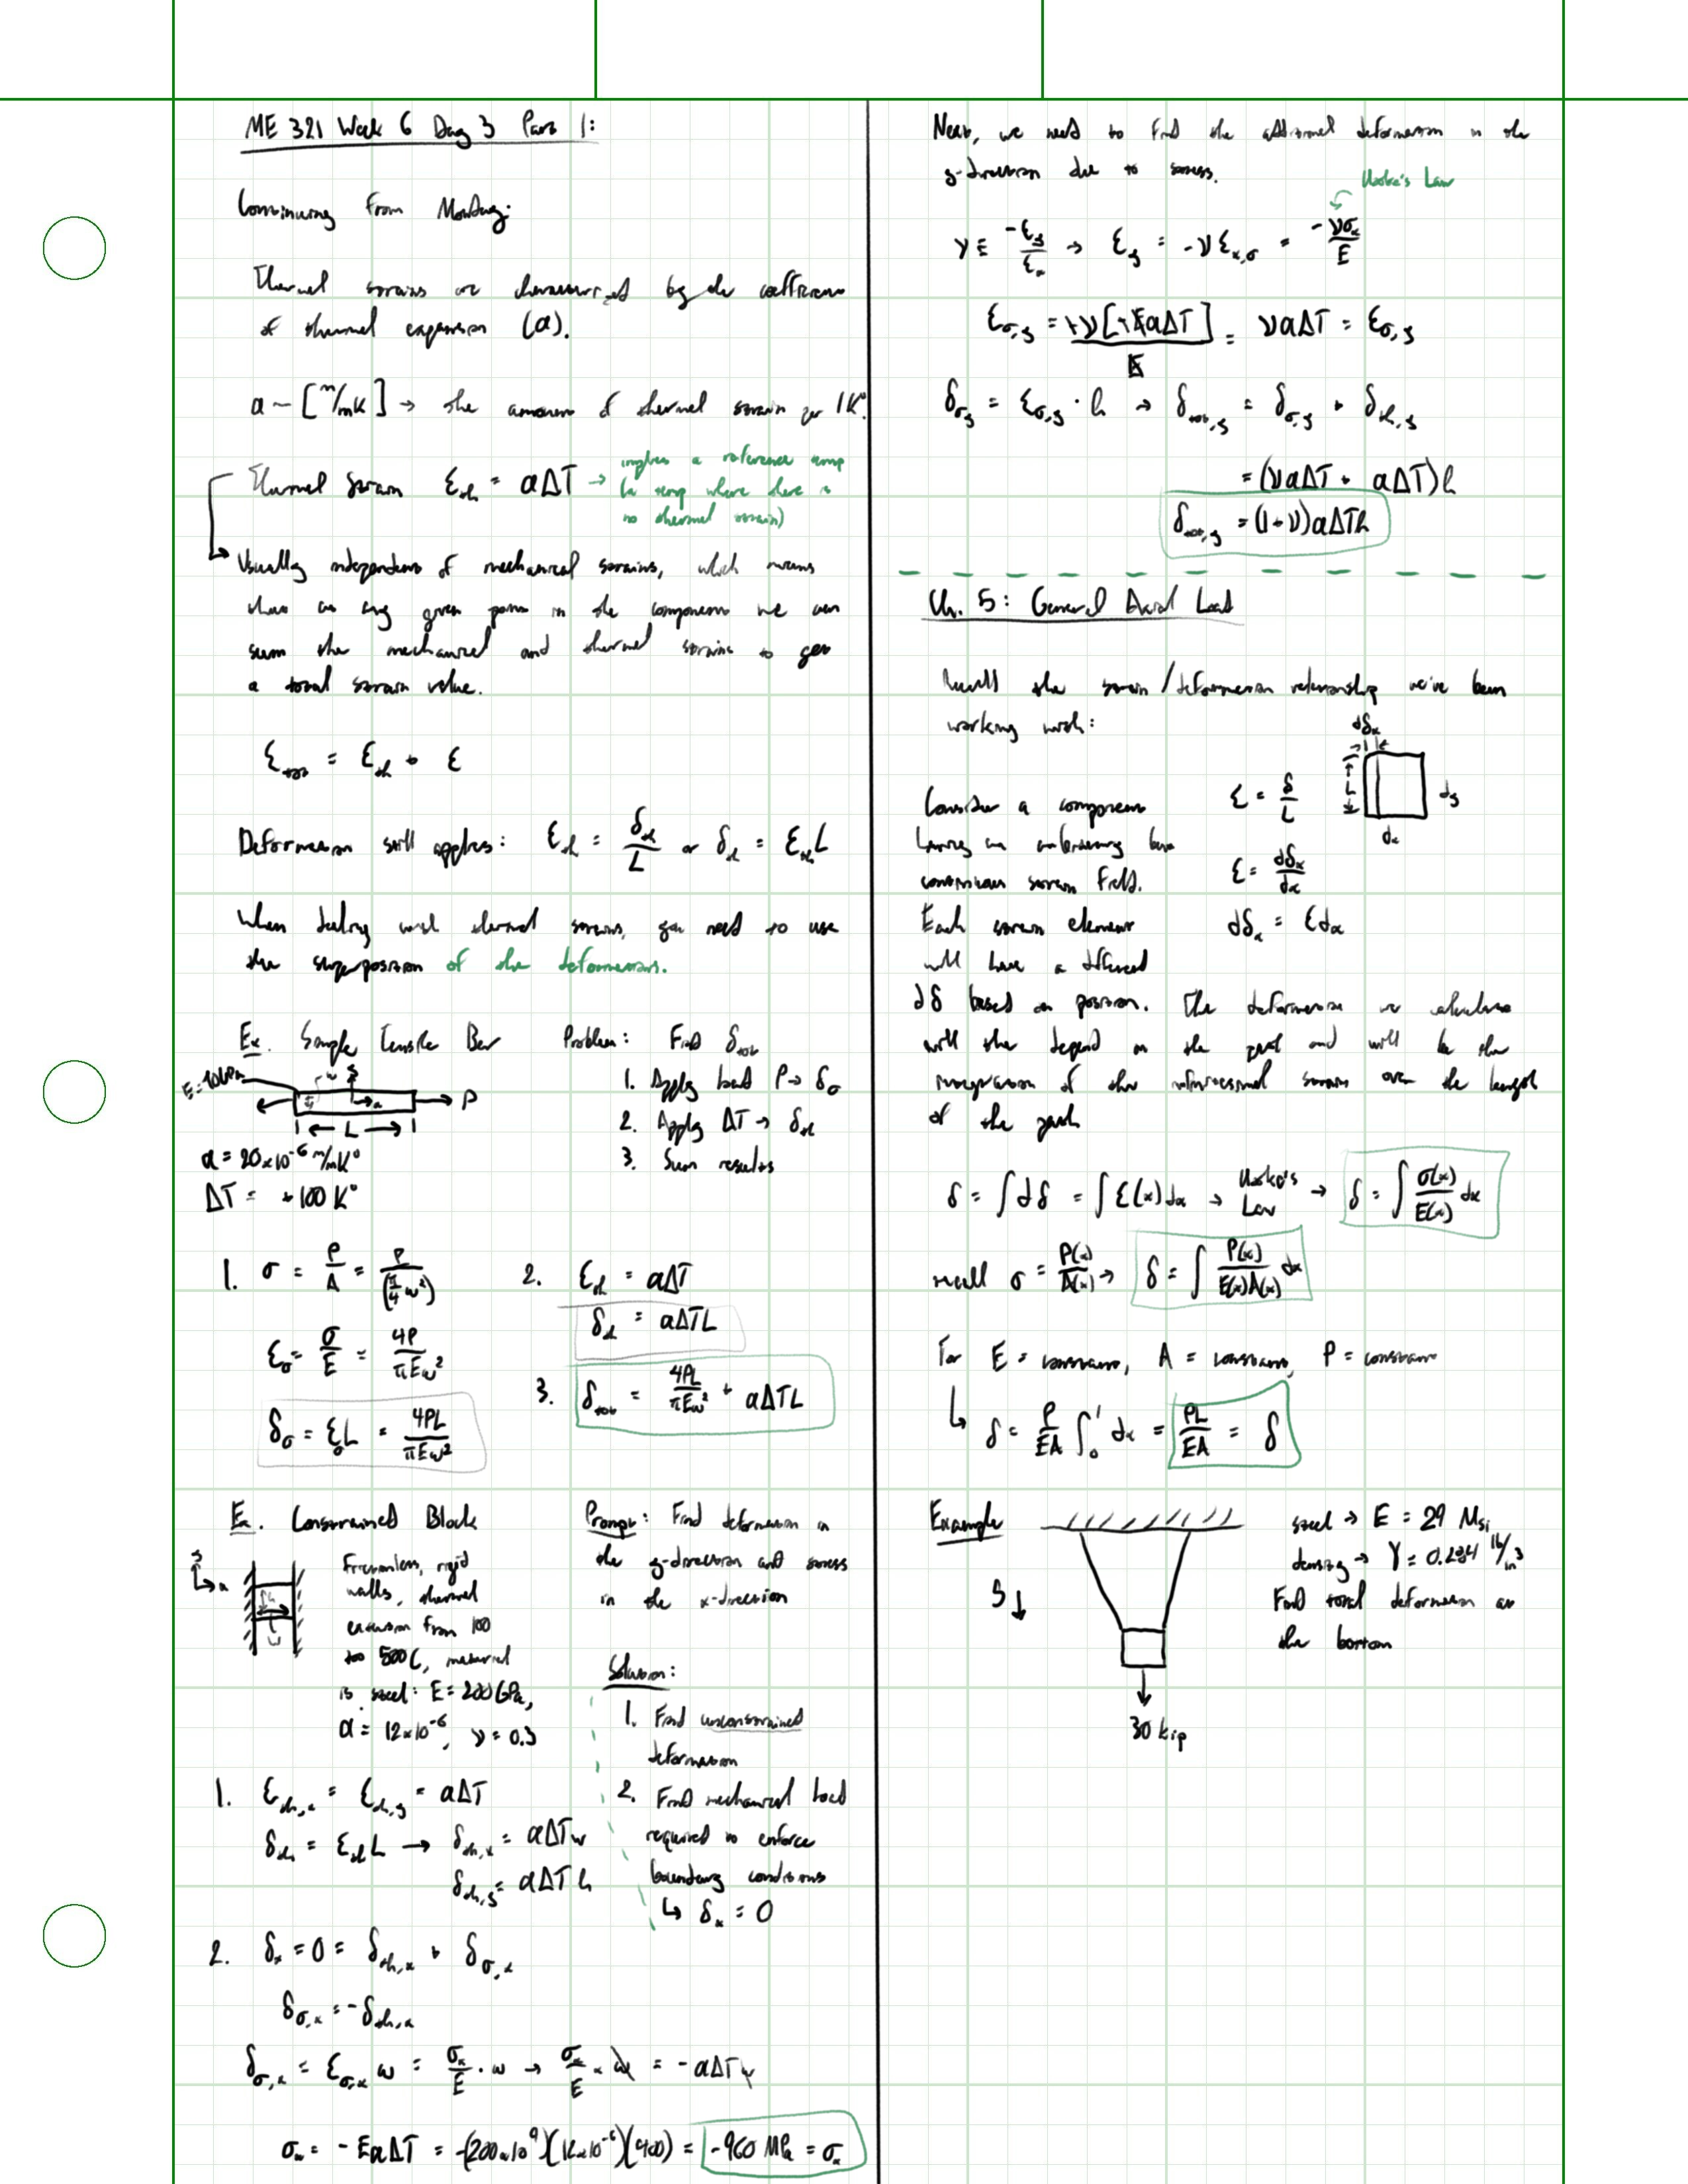 ME 321 Week 6 Day 3 Part 1:
Continuing from Monday:
Thermal strains are characterized by the coefficient
of thermal expansion (α).
α ~ [m/mK] → the amount of thermal strain per 1K°
Thermal Strain ε_th = αΔT → implies a reference temp
(a temp where there is
no thermal strain)
Usually independent of mechanical strains, which means
that at any given point in the component we can
sum the mechanical and thermal strains to get
a total strain value.
ε_tot = ε_th + ε
Deformation still applies: ε_th = δ_th/L or δ_th = ε_th L
When dealing with thermal strains, you need to use
the superposition of the deformations.
Ex. Simple Tensile Bar
Problem: Find δ_tot
1. Apply load P → δ_σ
2. Apply ΔT → δ_th
3. Sum results
w y
x P
L
α = 20×10^-6 m/mK°
ΔT = +100 K°
1. σ = P/A = P/(π/4 w²)
ε_σ = σ/E = 4P/πEw²
δ_σ = ε_σ L = 4PL/πEw²
2. ε_th = αΔT
δ_th = αΔTL
3. δ_tot = 4PL/πEw² + αΔTL
Ex. Constrained Block
y
x
h
w
Frictionless, rigid
walls, thermal
excursion from 100
too 500C, material
is steel: E = 200 GPa,
α = 12×10^-6, ν = 0.3
Prompt: Find deformation in
the y-direction and stress
in the x-direction
Solution:
1. Find unconstrained
deformation
2. Find mechanical load
required to enforce
boundary conditions
↳ δ_x = 0
1. ε_th,x = ε_th,y = αΔT
δ_th = ε_th L → δ_th,x = αΔTw
δ_th,y = αΔTh
2. δ_x = 0 = δ_th,x + δ_σ,x
δ_σ,x = -δ_th,x
δ_σ,x = ε_σ,x w = σ_x/E · w → σ_x/E × w = -αΔTw
σ_x = -EαΔT = -(200×10^9)(12×10^-6)(400) = -960 MPa = σ_x
Next, we need to find the additional deformation in the
y-direction due to stress.
Hooke's Law
ν ≡ -ε_y/ε_x → ε_y = -νε_x,σ = -νσ_x/E
ε_σ,y = +ν[+EαΔT]/E = ναΔT = ε_σ,y
δ_σ,y = ε_σ,y · h → δ_tot,y = δ_σ,y + δ_th,y
= (ναΔT + αΔT)h
δ_tot,y = (1+ν)αΔTh
Ch. 5: General Axial Load
Recall the strain/deformation relationship we've been
working with:
dδ_x
L
dy
dx
ε = δ/L
ε = dδ_x/dx
dδ_x = εdx
Consider a component
having an but
continuous strain field.
Each strain element
will have a different
dδ based on position. The deformation we calculate
will then depend on the path and will be the
integration of the infinitesimal strain over the length
of the path
δ = ∫dδ = ∫ε(x)dx → Hooke's Law → δ = ∫σ(x)/E(x) dx
recall σ = P(x)/A(x) → δ = ∫P(x)/E(x)A(x) dx
For E = constant, A = constant, P = constant
↳ δ = P/EA ∫₀ˡ dx = PL/EA = δ
Example
steel → E = 29 Msi
density → γ = 0.284 lb/in³
Find total deformation at
the bottom
y↓
30 kip